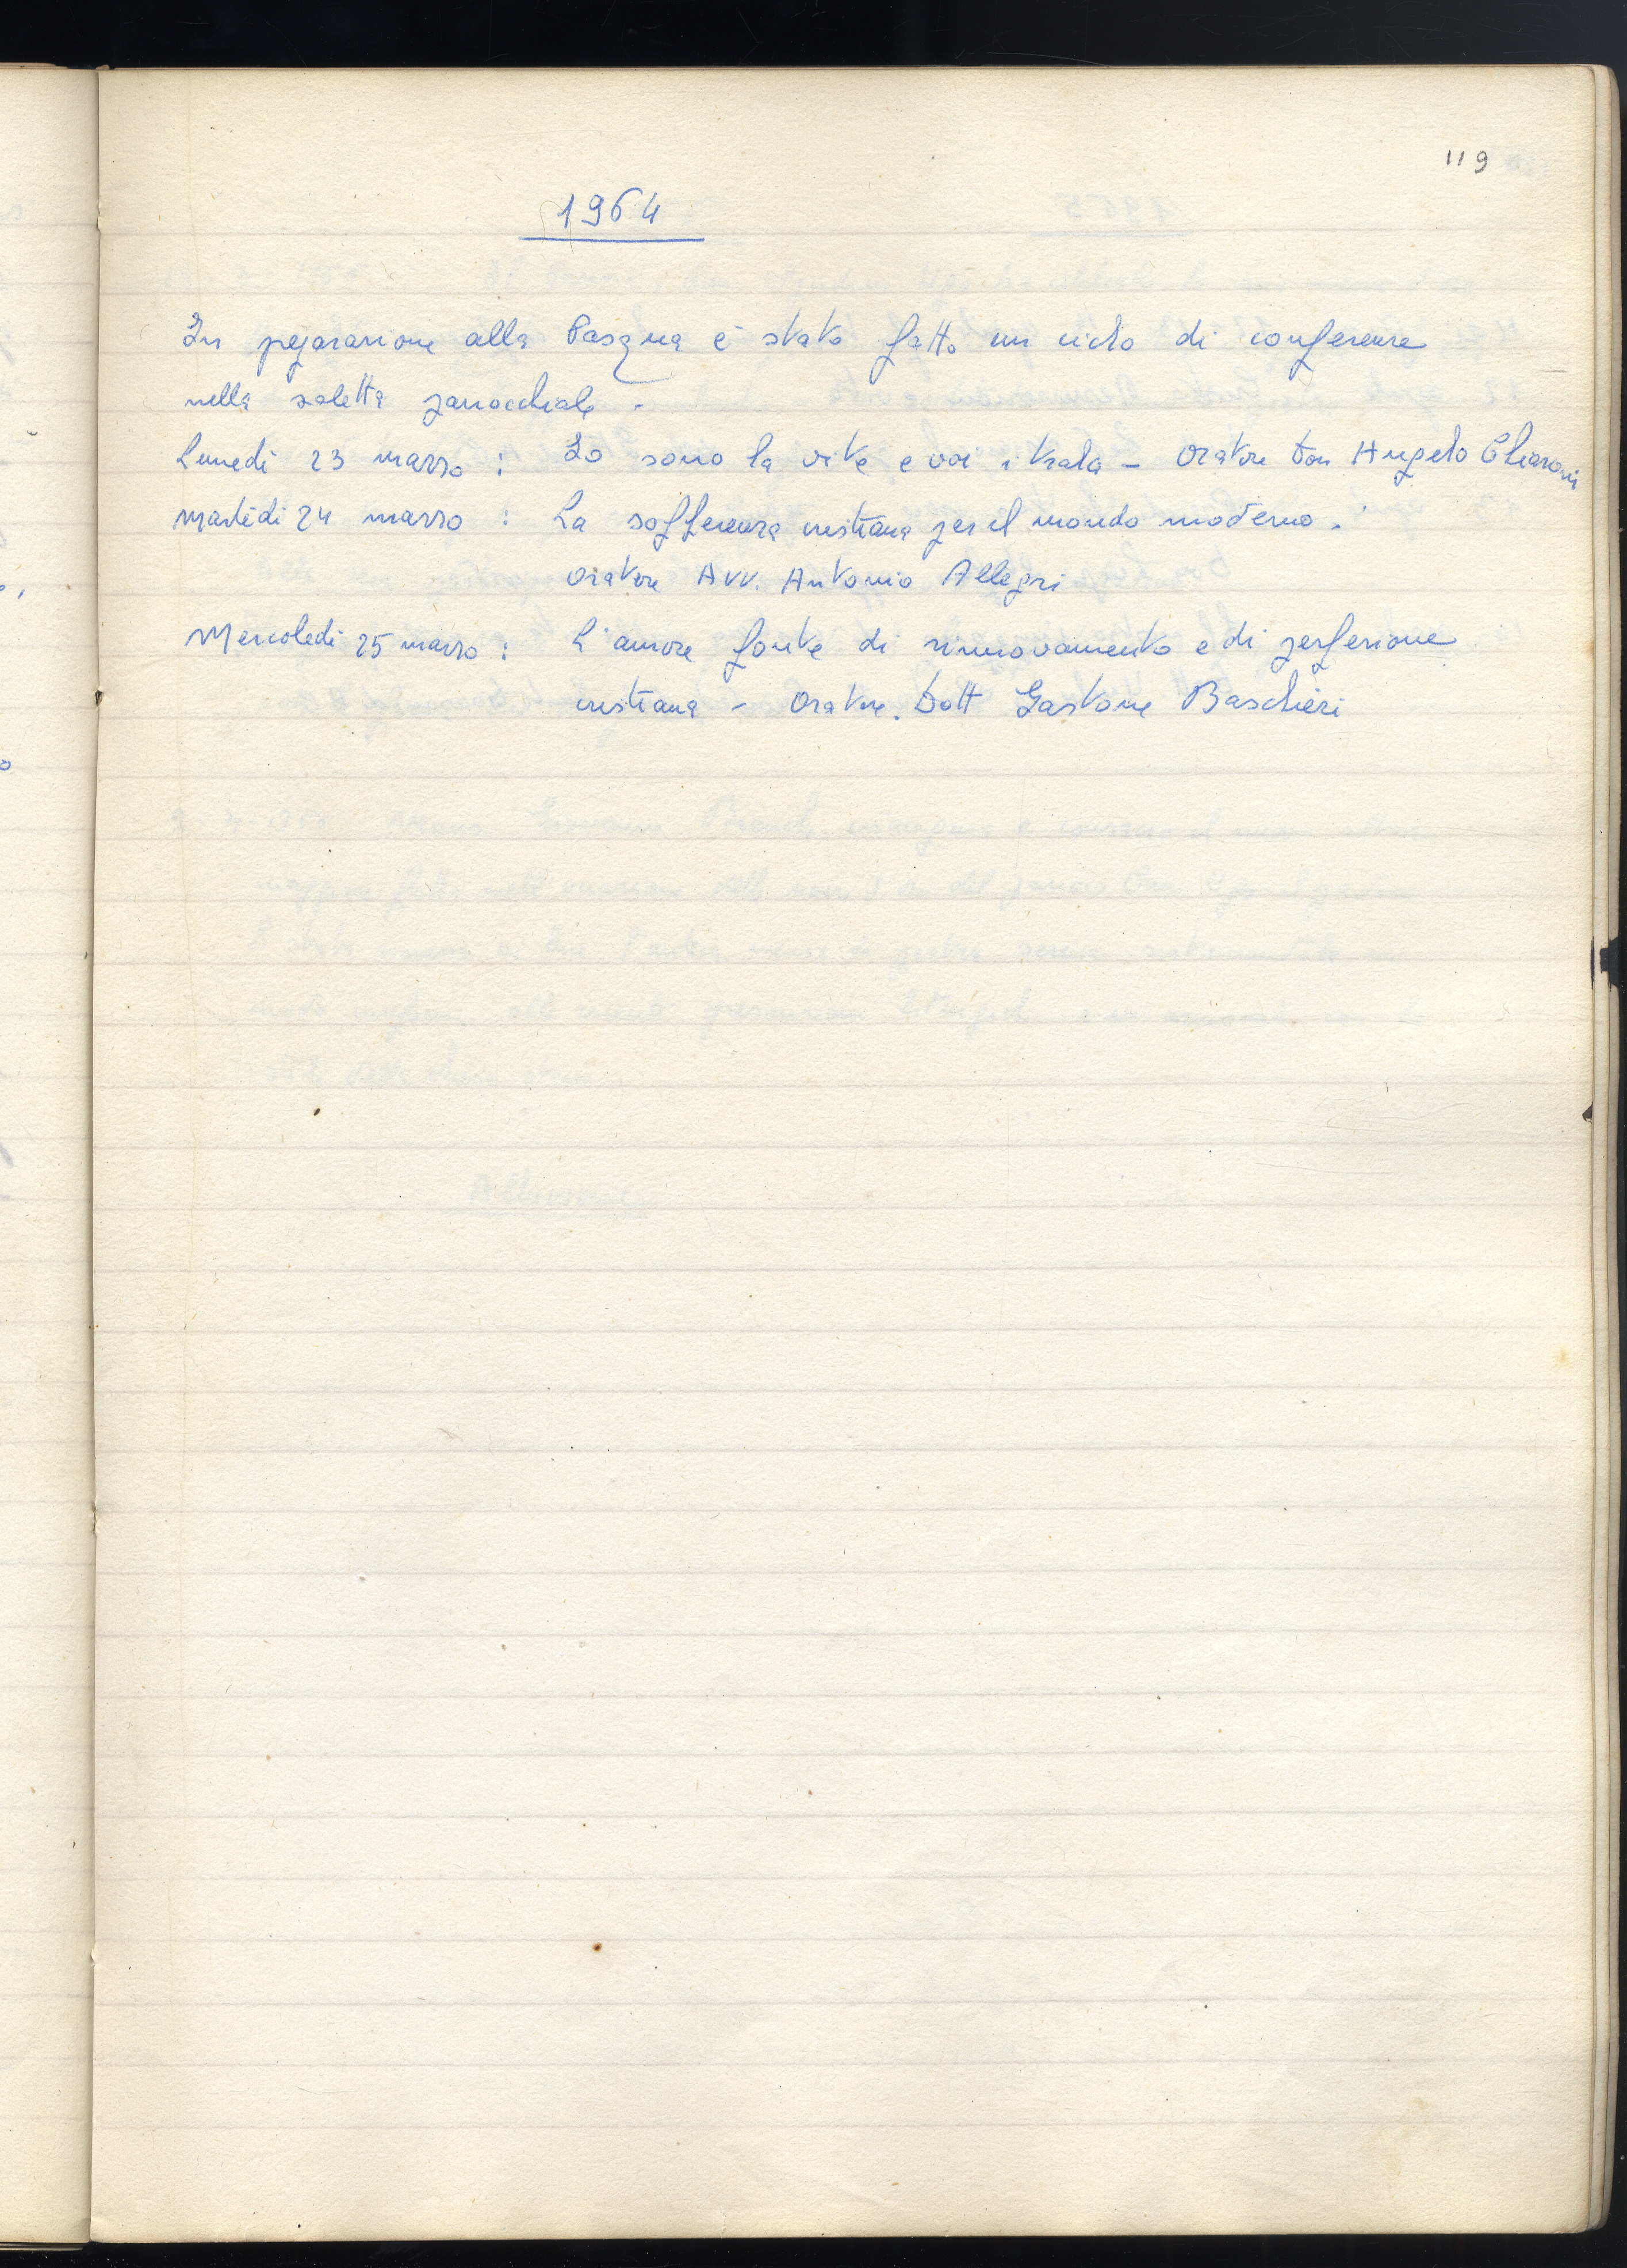 119
1964
In preparazione alla Pasqua è stato fatto un ciclo di conferenze
nella saletta parrocchiale.
Lunedì 23 marzo : Io sono la vite e voi i tralci - Oratore Don Angelo Chiaroni
Martedì 24 marzo : La sofferenza cristiana per il mondo moderno.
Oratore Avv. Antonio Allegri
Mercoledì 25 marzo : L'amore fonte di rinnovamento e di perfezione
cristiana - Oratore. Dott Gastone Baschieri